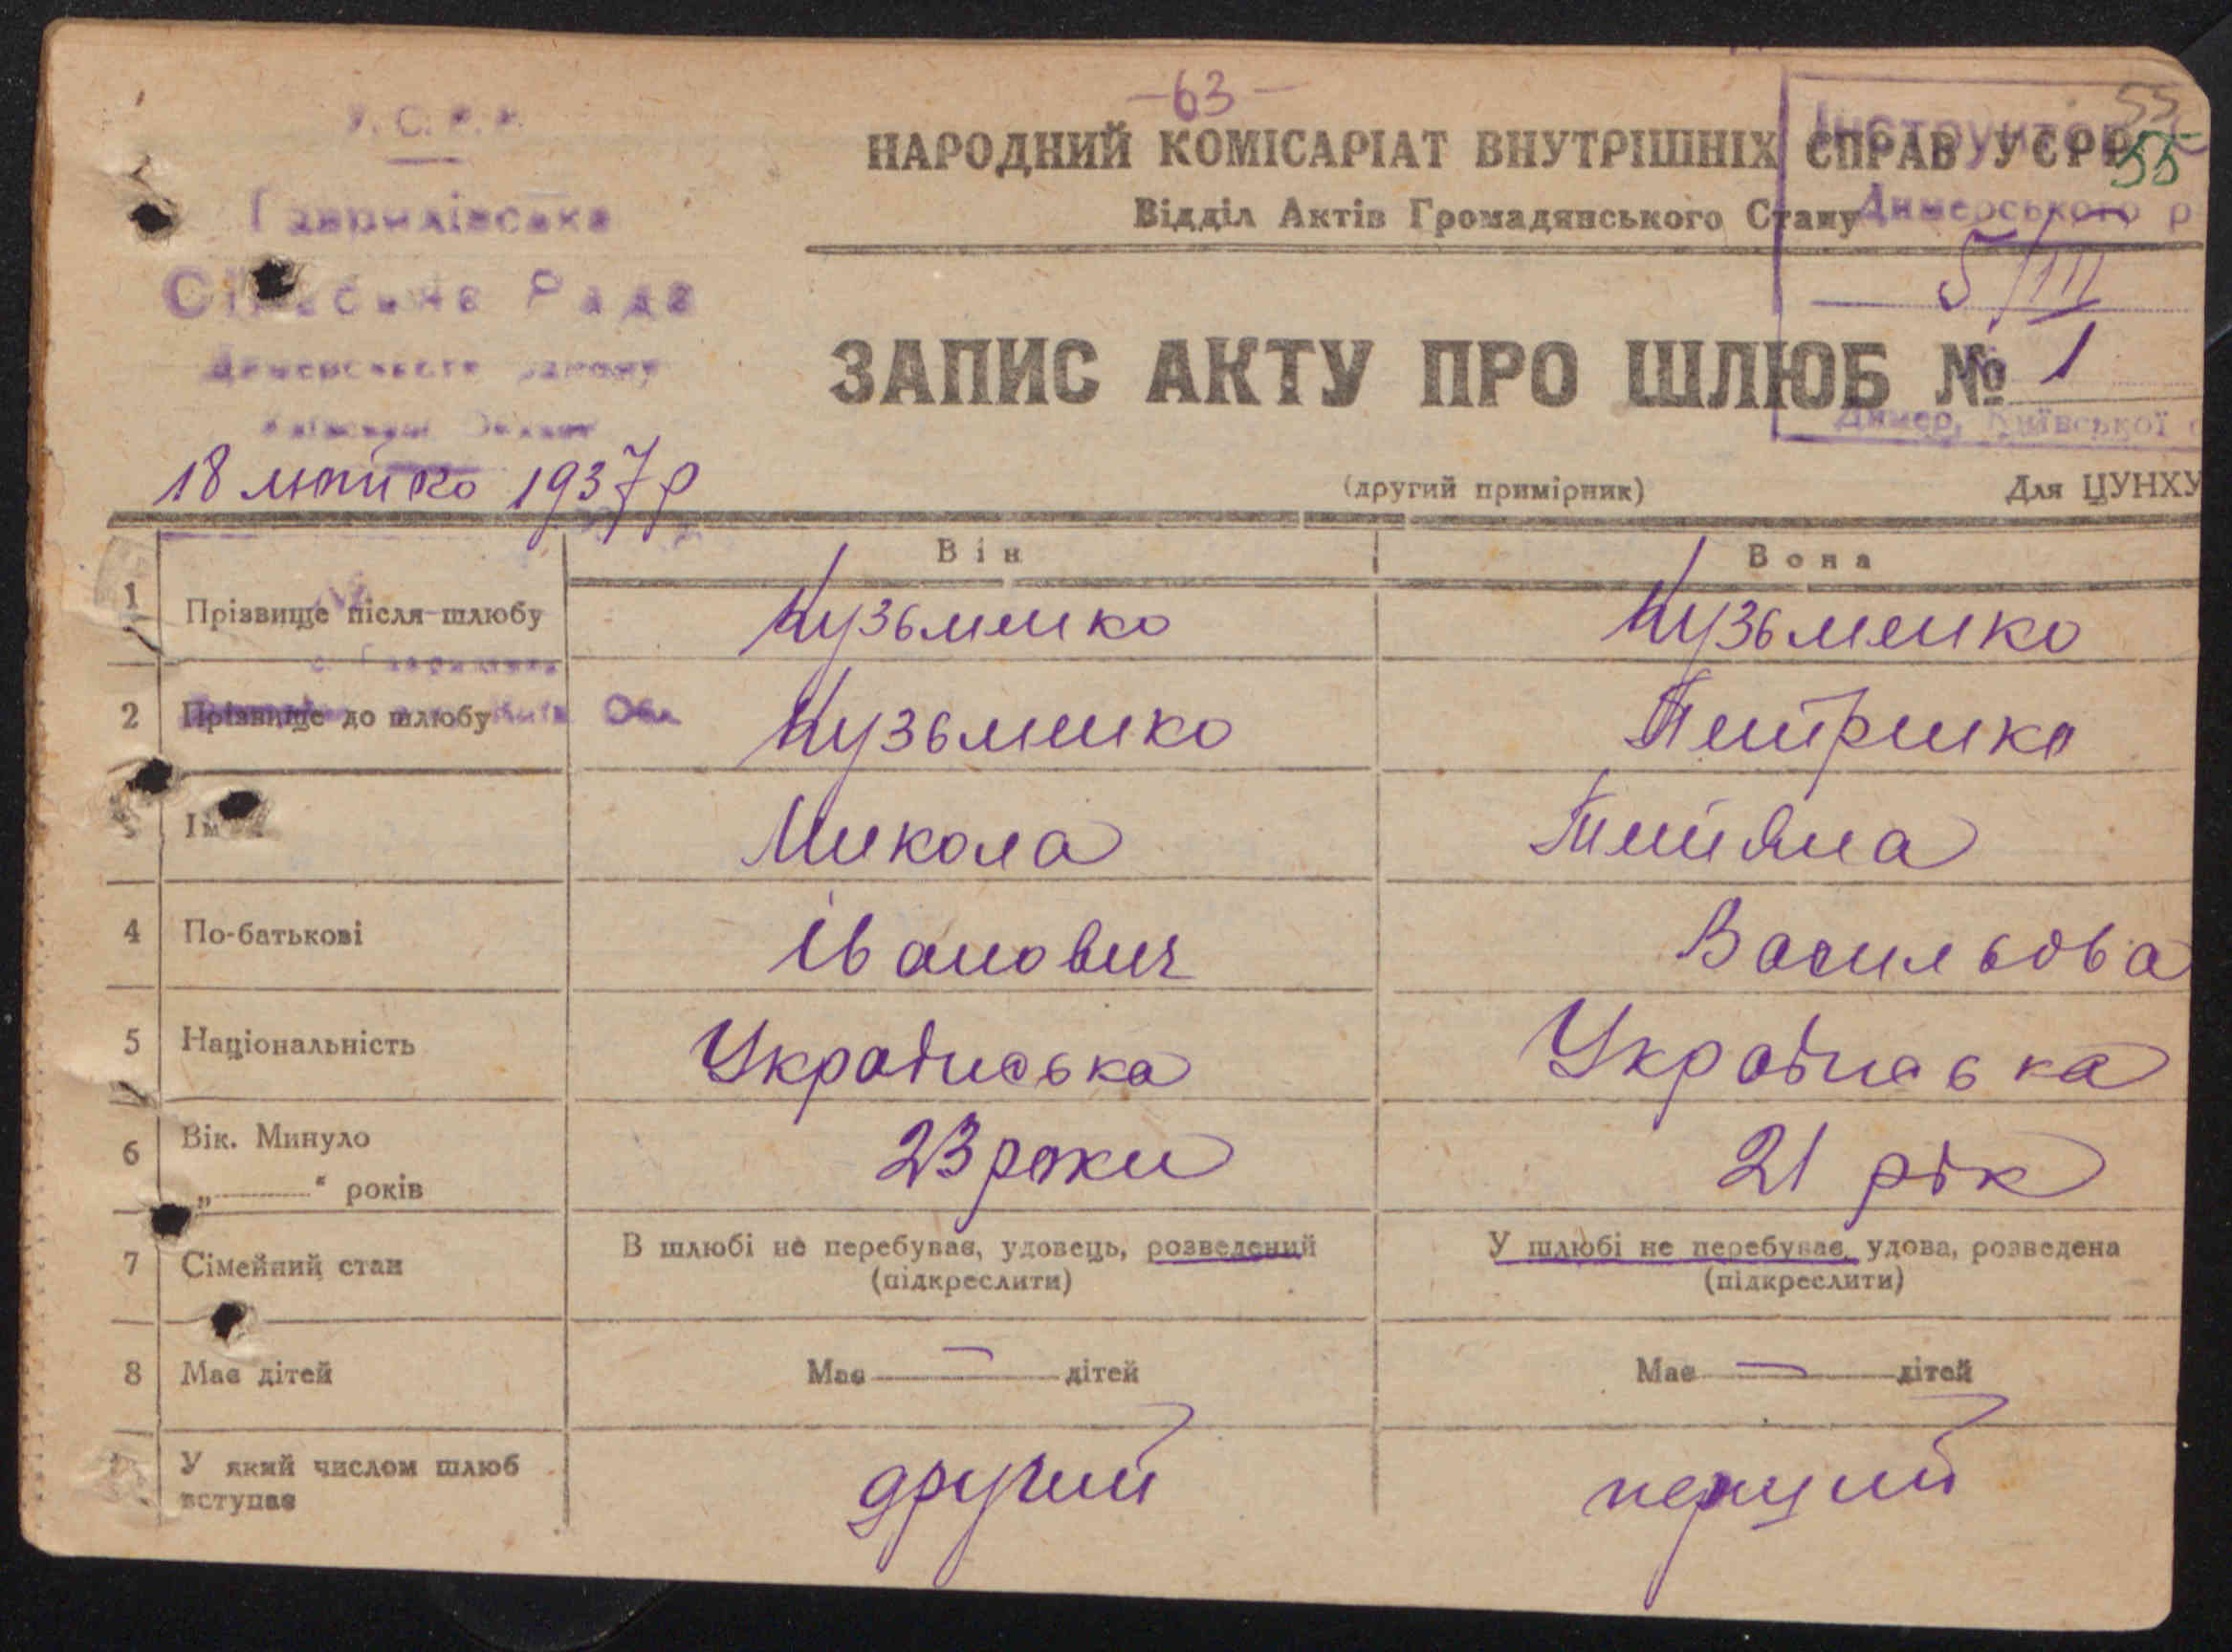 -63-
55
55
У.С.Р.Р.
Гаврилівська
Сільська Рада
Димерського району
Київської Області
18 лютого 1937 р
НАРОДНИЙ КОМІСАРІАТ ВНУТРІШНІХ СПРАВ УСРР
Відділ Актів Громадянського Стану
Інструктор
Димерського р
5/III
Димер, Київської о
ЗАПИС АКТУ ПРО ШЛЮБ № 1
(другий примірник) Для ЦУНХУ
Він Вона
1 Прізвище після шлюбу Кузьменко Кузьменко
2 Прізвище до шлюбу Кузьменко Петренко
Обл
Ім Микола Тетяна
4 По-батькові Іванович Васильова
5 Національність Українська Українська
6 Вік. Минуло 23 роки 21 рік
„ “ років
7 Сімейний стан В шлюбі не перебуває, удовець, розведений У шлюбі не перебуває, удова, розведена
(підкреслити) (підкреслити)
8 Має дітей Має — дітей Має — дітей
У який числом шлюб вступає другий перший